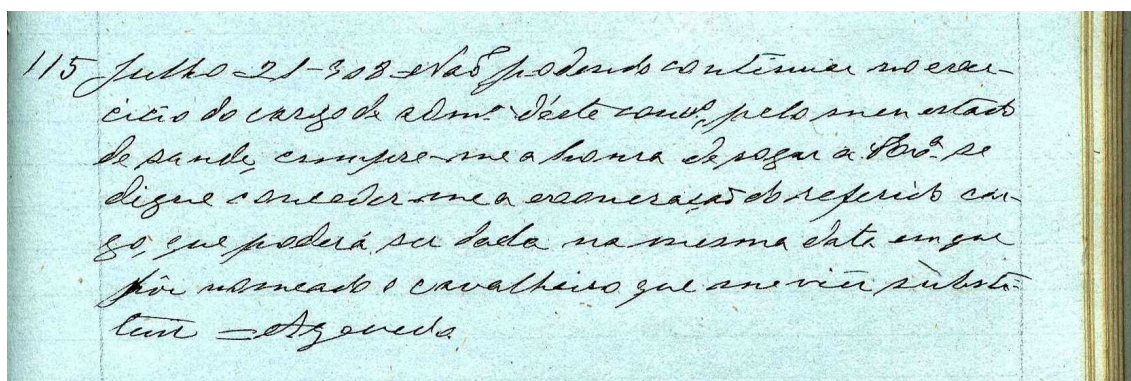 115 Julho = 21 - 908 = Não podendo continuar no exer-
cicio do cargo de adm.or d'este conc.o, pelo meu estado
de saude, cumpre-me a honra de rogar a V. Ex.a se
digne conceder-me a exoneração do referido car-
go, que poderá ser dada na mesma data em que
fôr nomeado o cavalheiro que me vier substi-
tuir = Azevedo